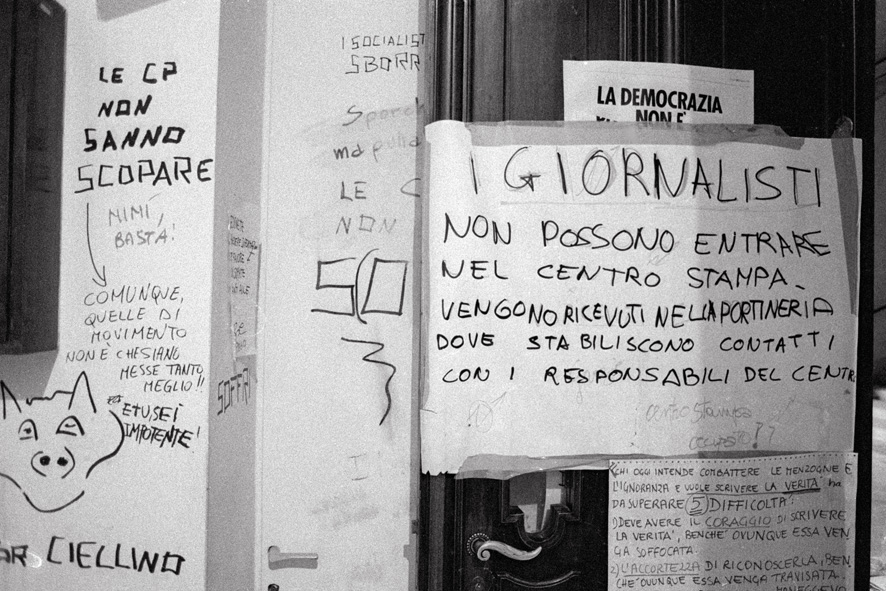 LE CP
NON
SANNO
SCOPARE
MIMÌ,
BASTA!
COMUNQUE,
QUELLE DI
MOVIMENTO
NON È CHE SIANO
MESSE TANTO
MEGLIO!!
E TU, SEI
IMPOTENTE!
CIELLINO
SOFFRI
I SOCIALIST
SBORR
Sporch
ma pulia
LE C
NON
SO
LA DEMOCRAZIA
NON È
I GIORNALISTI
NON POSSONO ENTRARE
NEL CENTRO STAMPA.
VENGONO RICEVUTI NELLA PORTINERIA
DOVE STABILISCONO CONTATTI
CON I RESPONSABILI DEL CENTR
centro stampa
occupato??
CHI OGGI INTENDE COMBATTERE LE MENZOGNE E
L'IGNORANZA E VUOLE SCRIVERE LA VERITA' ha
DA SUPERARE 5 DIFFICOLTA':
1) DEVE AVERE IL CORAGGIO DI SCRIVERE
LA VERITA', BENCHE' OVUNQUE ESSA VEN
GA SOFFOCATA.
2) L'ACCORTEZZA DI RICONOSCERLA, BEN
CHE' OVUNQUE ESSA VENGA TRAVISATA.